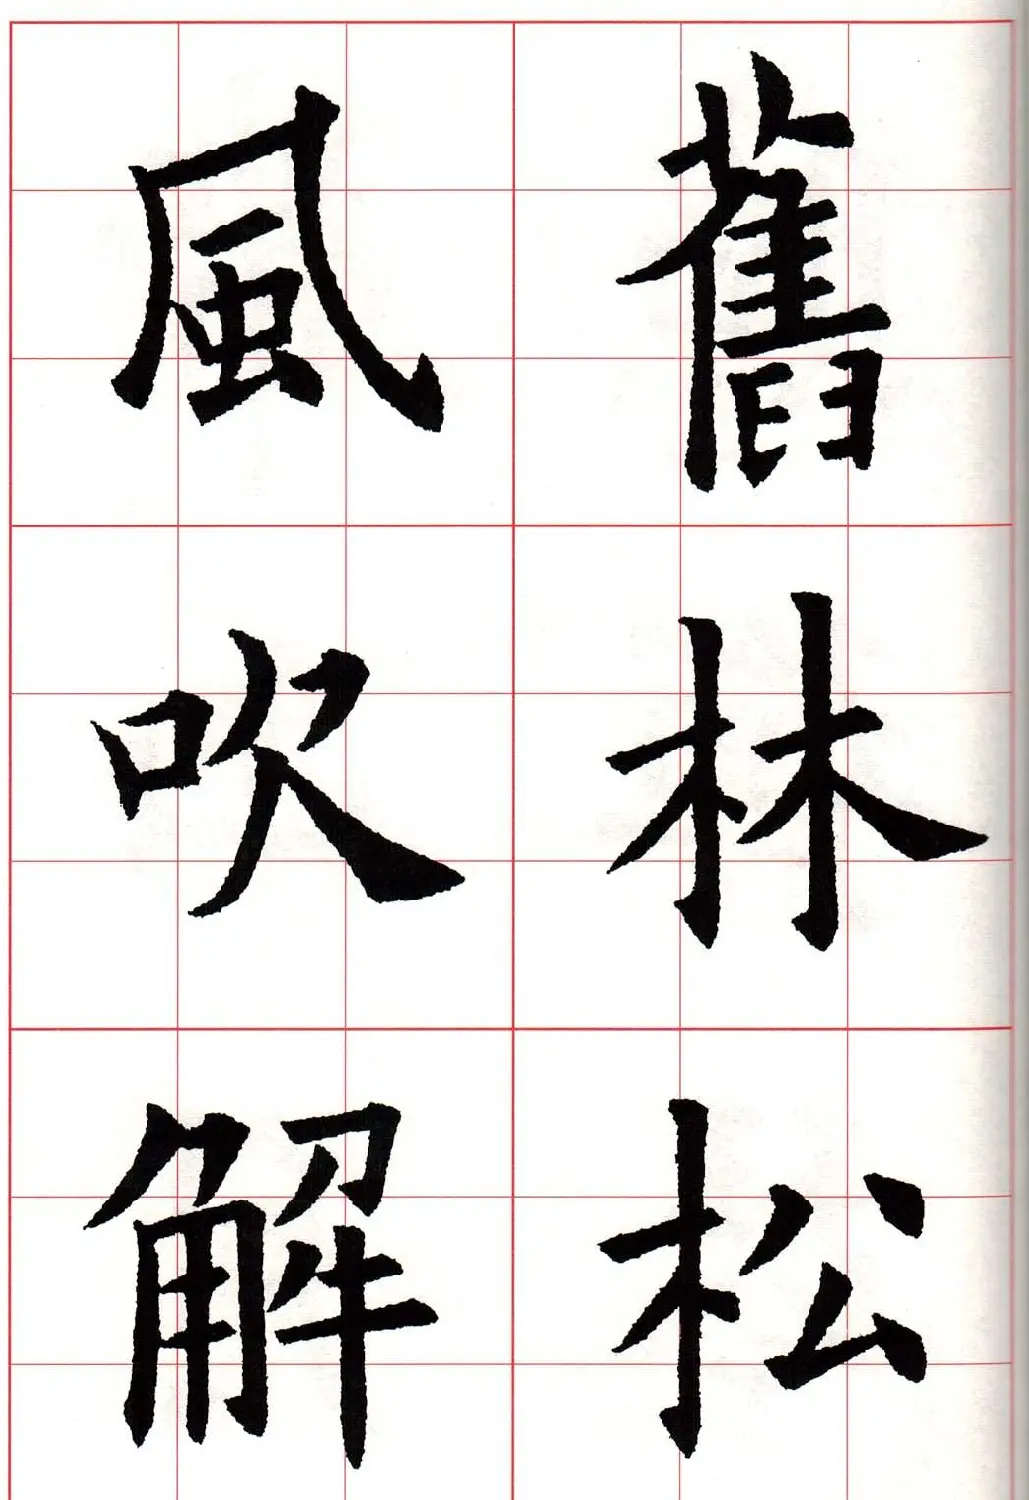 舊林松
風吹解